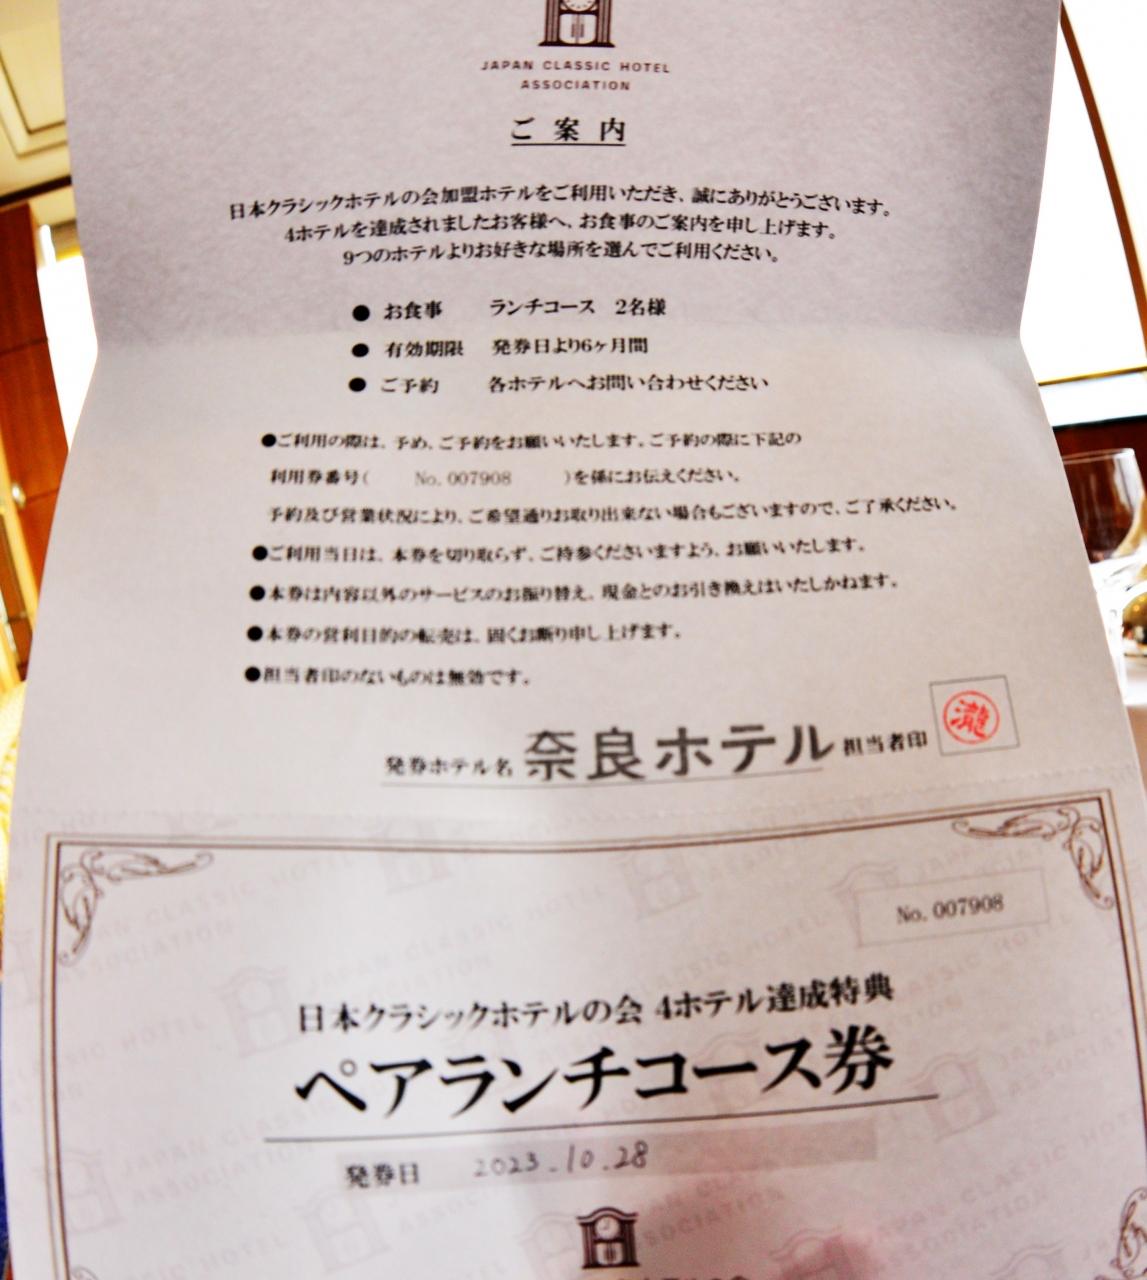 JAPAN CLASSIC HOTEL
ASSOCIATION
ご案内
日本クラシックホテルの会加盟ホテルをご利用いただき、誠にありがとうございます。
4ホテルを達成されましたお客様へ、お食事のご案内を申し上げます。
9つのホテルよりお好きな場所を選んでご利用ください。
● お食事 ランチコース 2名様
● 有効期限 発券日より6ヶ月間
● ご予約 各ホテルへお問い合わせください
●ご利用の際は、予め、ご予約をお願いいたします。ご予約の際に下記の
利用券番号( No. 007908 )を係にお伝えください。
予約及び営業状況により、ご希望通りお取り出来ない場合もございますので、ご了承ください。
●ご利用当日は、本券を切り取らず、ご持参くださいますよう、お願いいたします。
●本券は内容以外のサービスのお振り替え、現金とのお引き換えはいたしかねます。
●本券の営利目的の転売は、固くお断り申し上げます。
●担当者印のないものは無効です。
発券ホテル名 奈良ホテル 担当者印 瀧
No. 007908
日本クラシックホテルの会 4ホテル達成特典
ペアランチコース券
発券日 2023.10.28